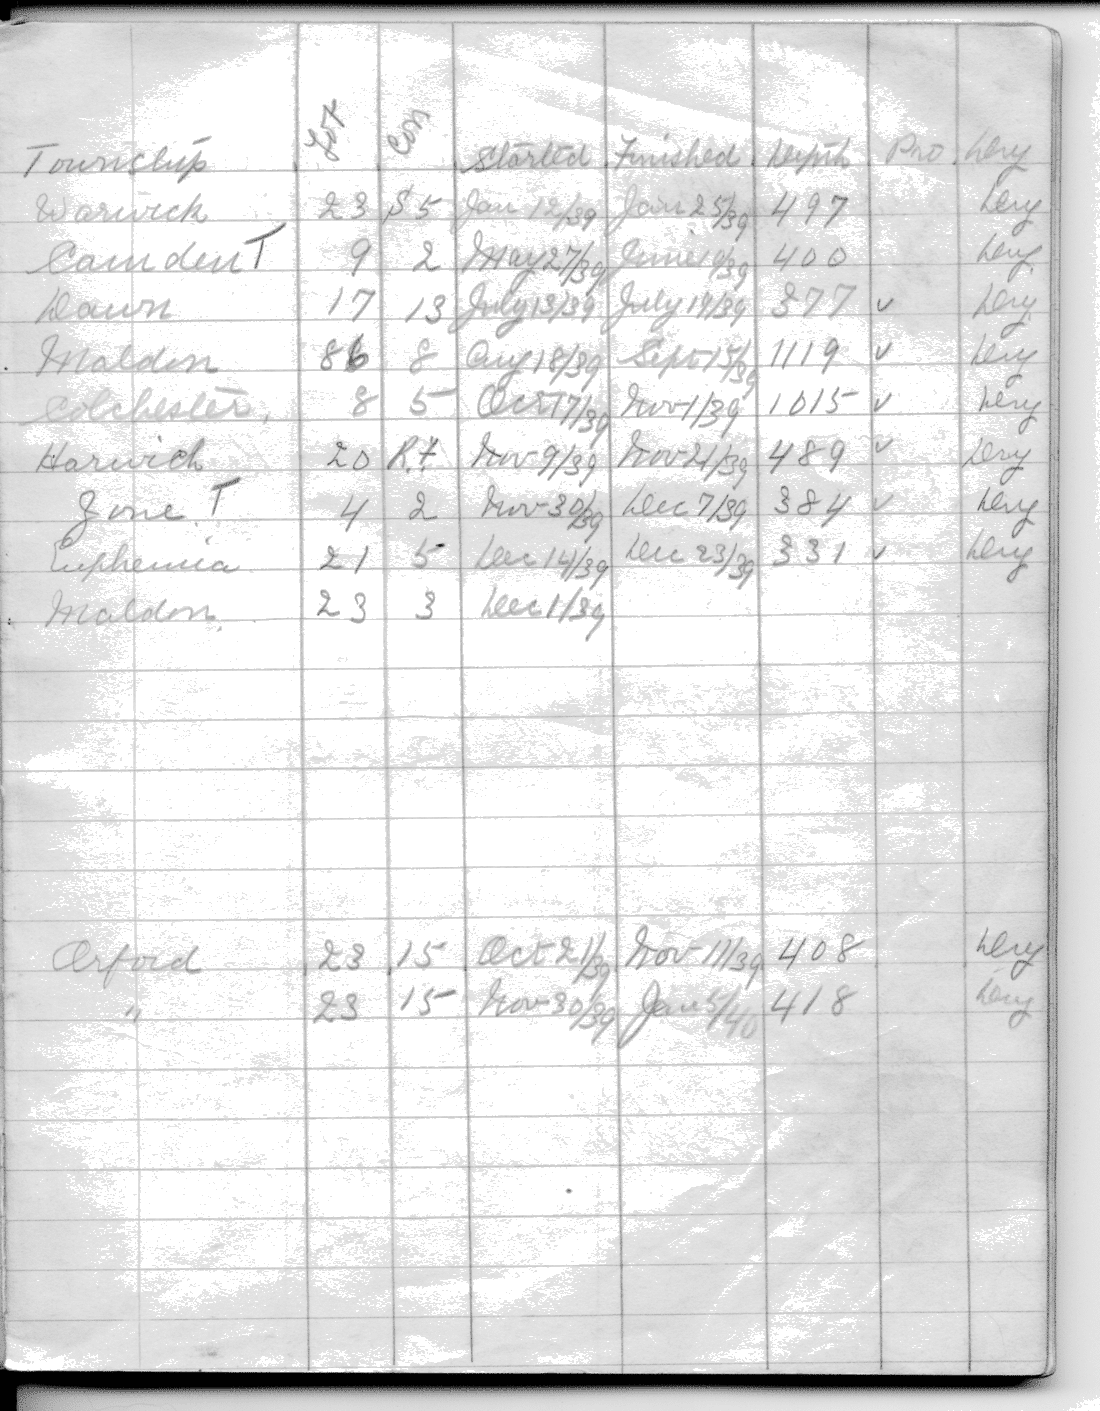 Township Lot Con Started Finished Depth Pro Dry
Warwick 23 S5 Jan 12/39 Jan 25/39 497 Dry
Camden T 9 2 May 27/39 June 9/39 400 Dry
Dawn 17 13 July 13/39 July 19/39 377 ✓ Dry
Maldon 86 8 Aug 18/39 Sept 15/39 1119 ✓ Dry
Colchester, 8 5 Oct 17/39 Nov 1/39 1015 ✓ Dry
Harwich 20 R.t Nov 9/39 Nov 21/39 489 ✓ Dry
Zone T 4 2 Nov 30/39 Dec 7/39 384 ✓ Dry
Euphemia 21 5 Dec 14/39 Dec 23/39 331 ✓ Dry
Maldon 23 3 Dec 1/39
Orford 23 15 Oct 21/39 Nov 11/39 408 Dry
" 23 15 Nov 30/39 Jan 5/40 418 Dry